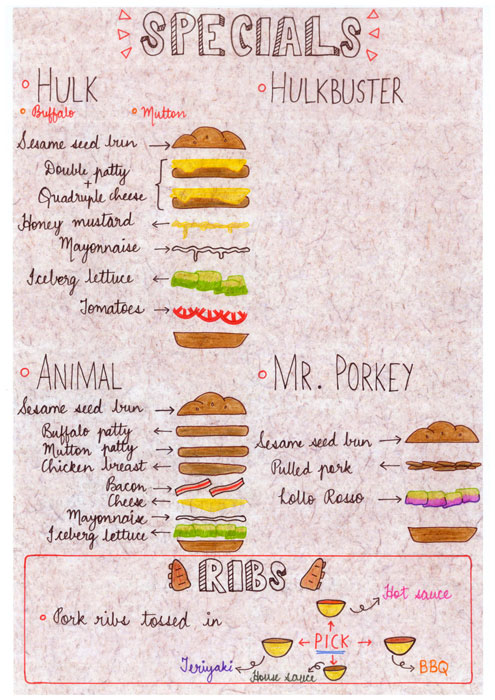 SPECIALS
HULK
Buffalo
Mutton
Sesame seed bun
Double patty
+
Quadruple cheese
Honey mustard
Mayonnaise
Iceberg lettuce
Tomatoes
HULKBUSTER
ANIMAL
Sesame seed bun
Buffalo patty
Mutton patty
Chicken breast
Bacon
Cheese
Mayonnaise
Iceberg lettuce
MR. PORKEY
Sesame seed bun
Pulled pork
Lollo Rosso
RIBS
Pork ribs tossed in
Hot sauce
PICK
Teriyaki
House sauce
BBQ